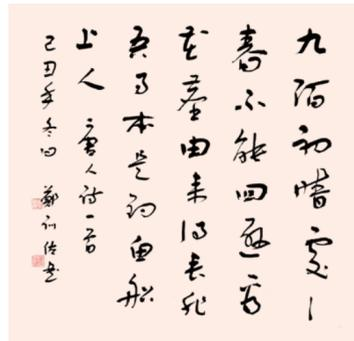 九陌初晴處〻
春不能回避看
花塵由來得喪非
吾事本是釣魚船
上人 唐人詩一首
己丑年冬日 鄭訓佐書